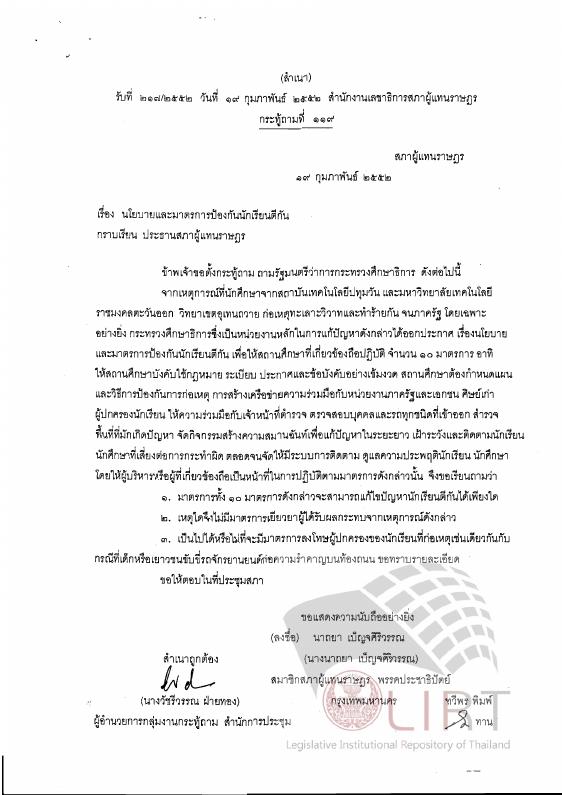 (สำเนา)
รับที่ ๒๑๗/๒๕๕๒ วันที่ ๑๙ กุมภาพันธ์ ๒๕๕๒ สำนักงานเลขาธิการสภาผู้แทนราษฎร
กระทู้ถามที่ ๑๑๙
สภาผู้แทนราษฎร
๑๙ กุมภาพันธ์ ๒๕๕๒
เรื่อง นโยบายและมาตรการป้องกันนักเรียนตีกัน
กราบเรียน ประธานสภาผู้แทนราษฎร
ข้าพเจ้าขอตั้งกระทู้ถาม ถามรัฐมนตรีว่าการกระทรวงศึกษาธิการ ดังต่อไปนี้
จากเหตุการณ์ที่นักศึกษาจากสถาบันเทคโนโลยีปทุมวัน และมหาวิทยาลัยเทคโนโลยี
ราชมงคลตะวันออก วิทยาเขตอุเทนถวาย ก่อเหตุทะเลาะวิวาทและทำร้ายกัน จนภาครัฐ โดยเฉพาะ
อย่างยิ่ง กระทรวงศึกษาธิการซึ่งเป็นหน่วยงานหลักในการแก้ปัญหาดังกล่าวได้ออกประกาศ เรื่องนโยบาย
และมาตรการป้องกันนักเรียนตีกัน เพื่อให้สถานศึกษาที่เกี่ยวข้องถือปฏิบัติ จำนวน ๑๐ มาตรการ อาทิ
ให้สถานศึกษาบังคับใช้กฎหมาย ระเบียบ ประกาศและข้อบังคับอย่างเข้มงวด สถานศึกษาต้องกำหนดแผน
และวิธีการป้องกันการก่อเหตุ การสร้างเครือข่ายความร่วมมือกับหน่วยงานภาครัฐและเอกชน ศิษย์เก่า
ผู้ปกครองนักเรียน ให้ความร่วมมือกับเจ้าหน้าที่ตำรวจ ตรวจสอบบุคคลและรถทุกชนิดที่เข้าออก สำรวจ
พื้นที่ที่มักเกิดปัญหา จัดกิจกรรมสร้างความสมานฉันท์เพื่อแก้ปัญหาในระยะยาว เฝ้าระวังและติดตามนักเรียน
นักศึกษาที่เสี่ยงต่อการกระทำผิด ตลอดจนจัดให้มีระบบการติดตาม ดูแลความประพฤตินักเรียน นักศึกษา
โดยให้ผู้บริหารหรือผู้ที่เกี่ยวข้องถือเป็นหน้าที่ในการปฏิบัติตามมาตรการดังกล่าวนั้น จึงขอเรียนถามว่า
๑. มาตรการทั้ง ๑๐ มาตรการดังกล่าวจะสามารถแก้ไขปัญหานักเรียนตีกันได้เพียงใด
๒. เหตุใดจึงไม่มีมาตรการเยียวยาผู้ได้รับผลกระทบจากเหตุการณ์ดังกล่าว
๓. เป็นไปได้หรือไม่ที่จะมีมาตรการลงโทษผู้ปกครองของนักเรียนที่ก่อเหตุเช่นเดียวกันกับ
กรณีที่เด็กหรือเยาวชนขับขี่รถจักรยานยนต์ก่อความรำคาญบนท้องถนน ขอทราบรายละเอียด
ขอให้ตอบในที่ประชุมสภา
ขอแสดงความนับถืออย่างยิ่ง
(ลงชื่อ) นาถยา เบ็ญจศิริวรรณ
สำเนาถูกต้อง (นางนาถยา เบ็ญจศิริวรรณ)
สมาชิกสภาผู้แทนราษฎร พรรคประชาธิปัตย์
(นางวัชรีวรรณ ฝ่ายทอง) กรุงเทพมหานคร ทวีพร พิมพ์
ผู้อำนวยการกลุ่มงานกระทู้ถาม สำนักการประชุม ทาน
LIRT
Legislative Institutional Repository of Thailand